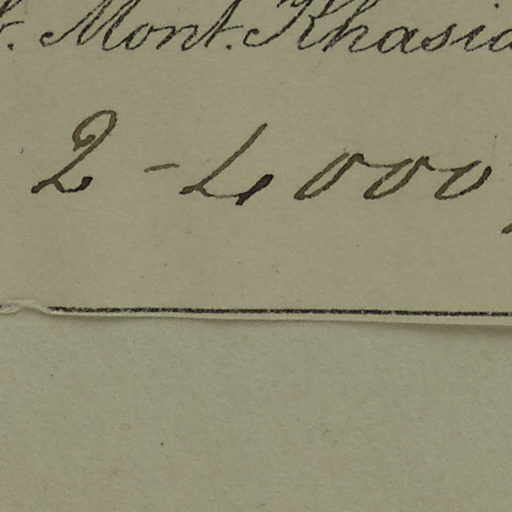 . Mont. Khasia
2 - 4000